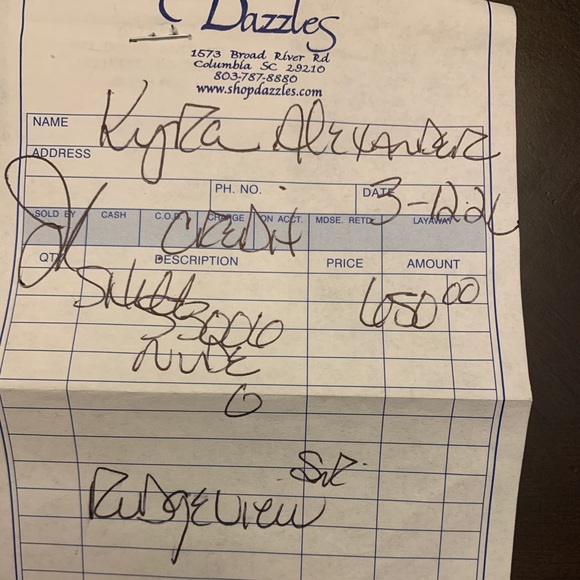 Dazzles
1573 Broad River Rd
Columbia SC 29210
803-787-8880
www.shopdazzles.com
NAME Kyra Alexander
ADDRESS
PH. NO. DATE 3-12-21
SOLD BY CASH C.O.D. CHARGE ON ACCT. MDSE. RETD. LAYAWAY
CREDIT
QTY. DESCRIPTION PRICE AMOUNT
650 00
NUDE
6
SR.
RidgeView